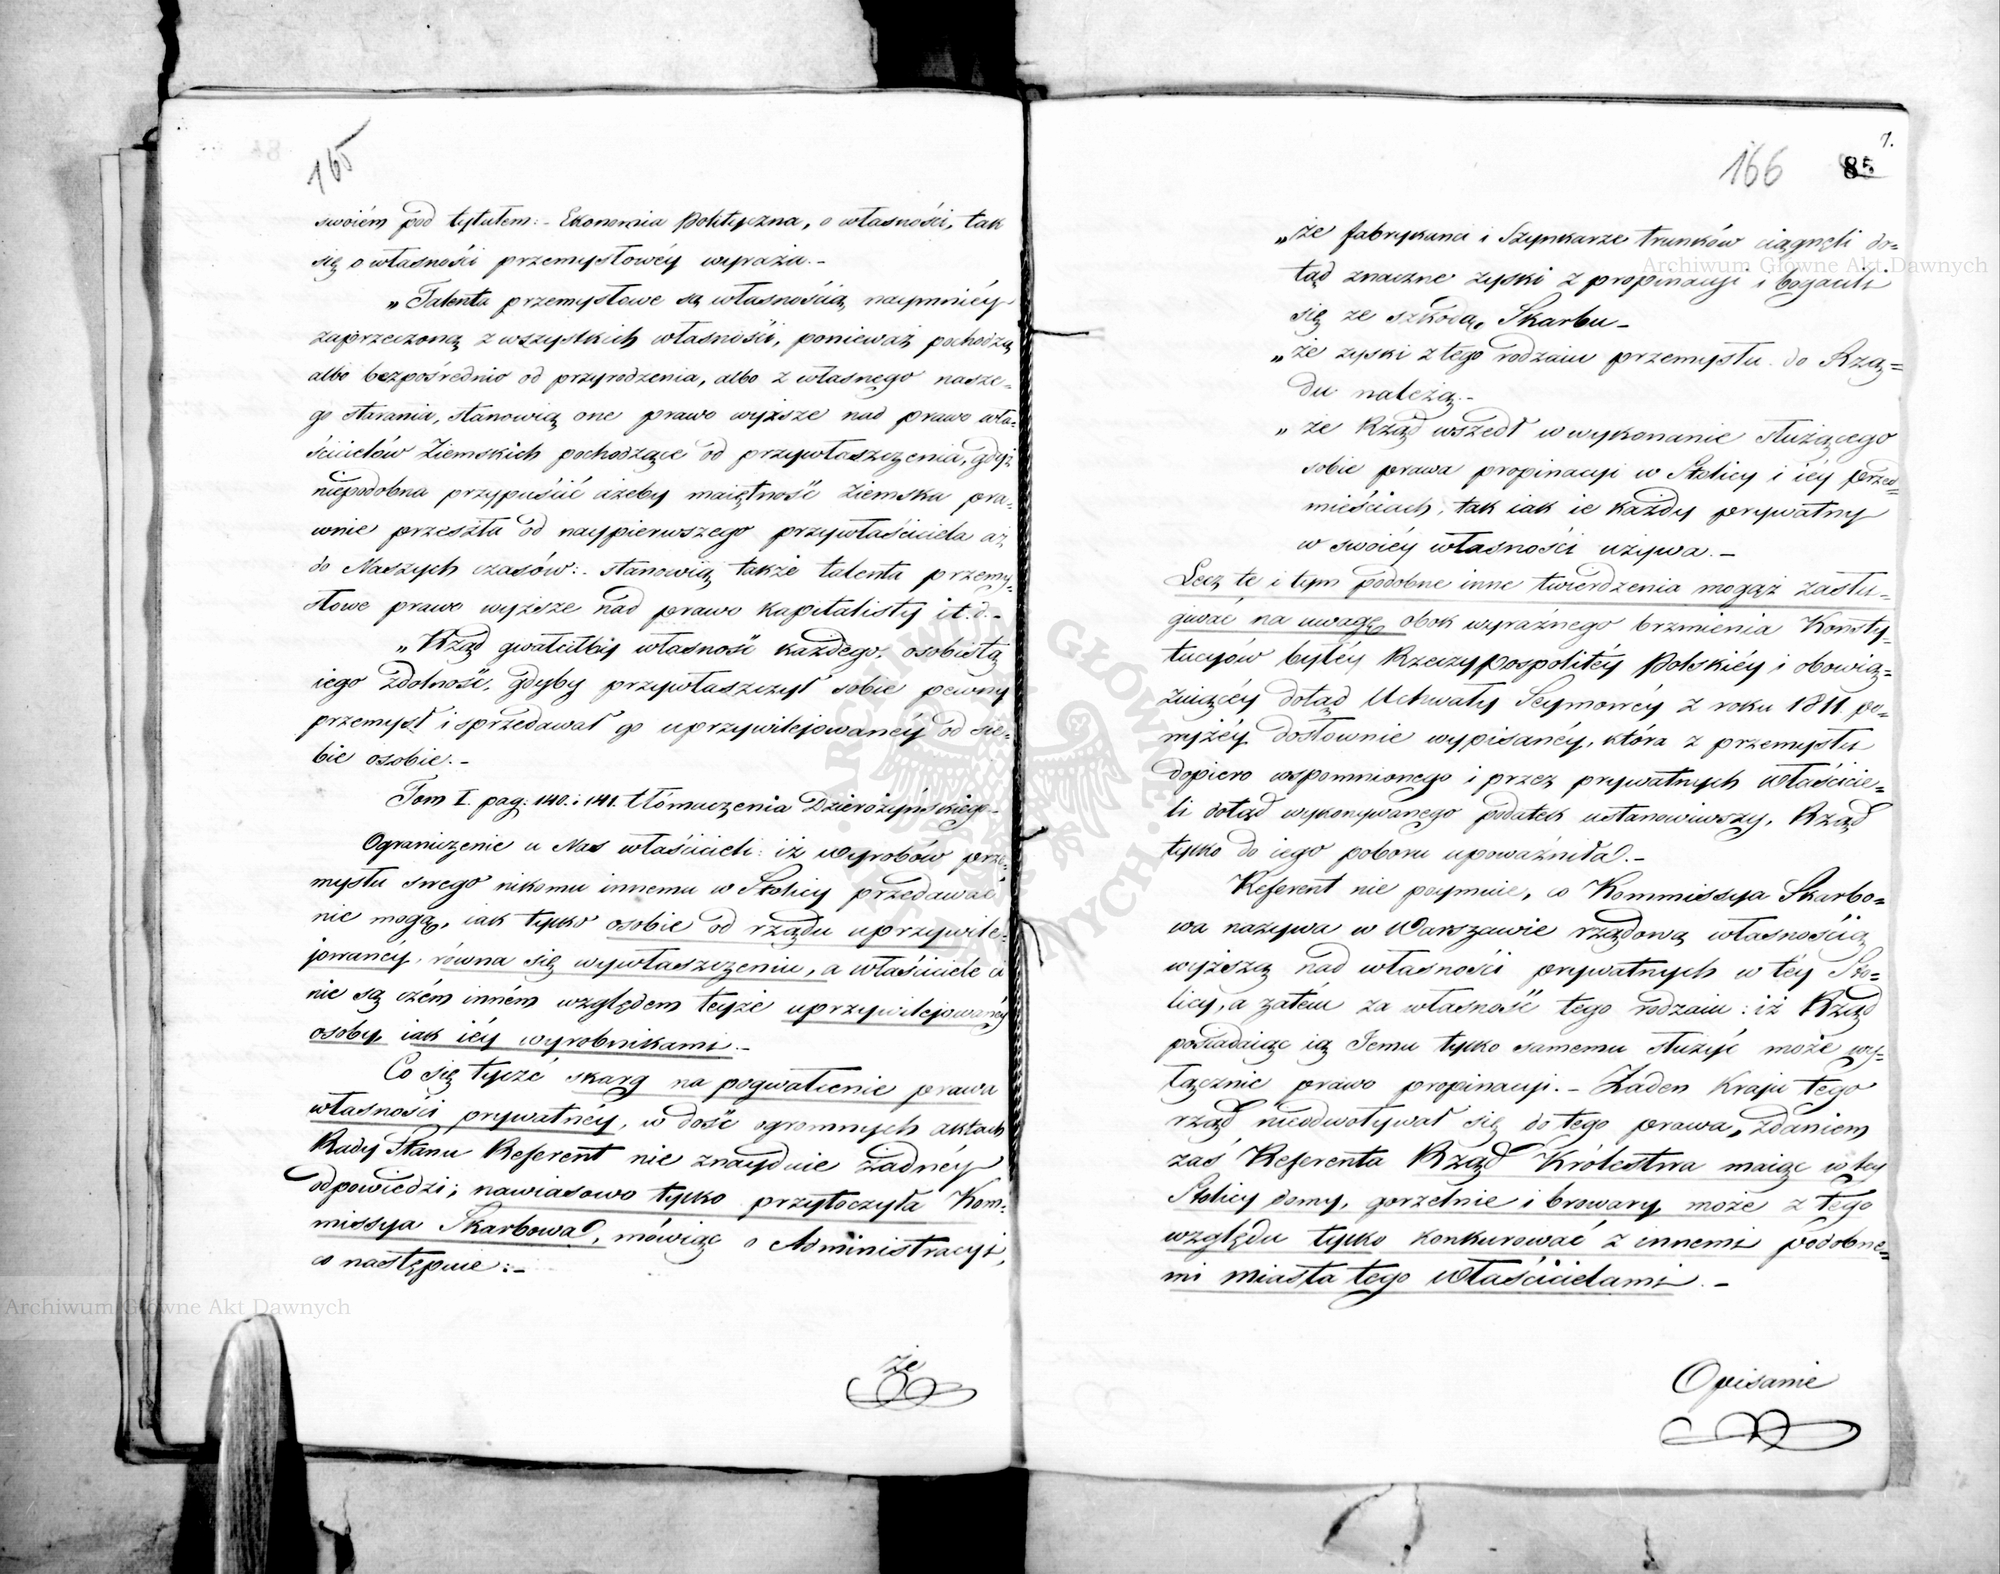 165
swoiém pod tytułem:- Ekonomia Polityczna, o własności, tak
się o własności przemysłowéy wyraża.-
„Talenta przemysłowe są własnością naymniéy
zaprzeczoną z wszystkich własności, ponieważ pochodzą
albo bezpośrednio od przyrodzenia, albo z własnego nasze-
go starania, stanowią one prawo wyższe nad prawo wła-
ścicielów Ziemskich pochodzące od przywłaszczenia, gdyż
niepodobna przypuścić ażeby maiętność Ziemska pra-
wnie przeszła od naypierwszego przywłaściciela aż
do Naszych czasów:- stanowią także talenta przemy-
słowe prawo wyższe nad prawo kapitalisty i t. d.-
„Rząd gwałciłby własność każdego, osobistą
iego zdolność, gdyby przywłaszczył sobie pewny
przemysł i sprzedawał go uprzywilejowanéy od sie-
bie osobie.-
Tom I. pag: 140. i 141. tłómaczenia Dzierożyńskiego-
Ograniczenie u Nas właścicieli: iż wyrobów prze-
mysłu swego nikomu innemu w Stolicy przedawać
nie mogą, iak tylko osobie od rządu uprzywile-
jowanéy, równa się wywłaszczeniu, a właściciele ci
nie są czém inném względem teyże uprzywilejowanéy
osoby, iak iéy wyrobnikami.-
Co się tycze skarg na pogwałcenie prawa
własności prywatnéy, w dość ogromnych aktach
Rady Stanu Referent nie znayduie żadnéy
odpowiedzi; nawiasowo tylko przytoczyła Kom-
missya Skarbowa, mówiąc o Administracyi,
co następuie:-
że
7.
166 85
„że fabrykanci i Szynkarze trunków ciągnęli do=
tąd znaczne zyski z propinacyi i bogacili
się ze szkodą Skarbu-
„że zyski z tego rodzaiu przemysłu do Rzą=
du należą.-
„że Rząd wszedł w wykonanie służącego
sobie prawa propinacyi w Stolicy i iéy przed=
mieściach, tak iak ie każdy prywatny
w swoiéy własności używa.-
Lecz te i tym podobne inne twierdzenia mogąż zasłu-
giwać na uwagę obok wyraźnego brzmienia Konsty-
tucyów byłéy Rzeczypospolitéy Polskiéy i obowią=
zuiącéy dotąd Uchwały Seymowéy z roku 1811. po=
niżéy dosłownie wypisanéy, która z przemysłu
dopiero wspomnionego i przez prywatnych właścicie=
li dotąd wykonywanego podatek ustanowiwszy, Rząd
tylko do iego poboru upoważniła.-
Referent nie poymuie, co Kommissya Skarbo=
wa nazywa w Warszawie rządową własnością
wyższą nad własności prywatnych w téy Sto=
licy, a zatém za własność tego rodzaiu: iż Rząd
posiadaiąc ią Jemu tylko samemu służyć może wy-
łącznie prawo propinacyi.- Żaden Kraju tego
rząd nieodwoływał się do tego prawa, zdaniem
zaś Referenta Rząd Królestwa maiąc w tey
Stolicy domy, gorzelnie i browary, może z tego
względu tylko konkurować z innemi podobne=
mi miasta tego właścicielami.-
Opisanie
Archiwum Główne Akt Dawnych
Archiwum Główne Akt Dawnych